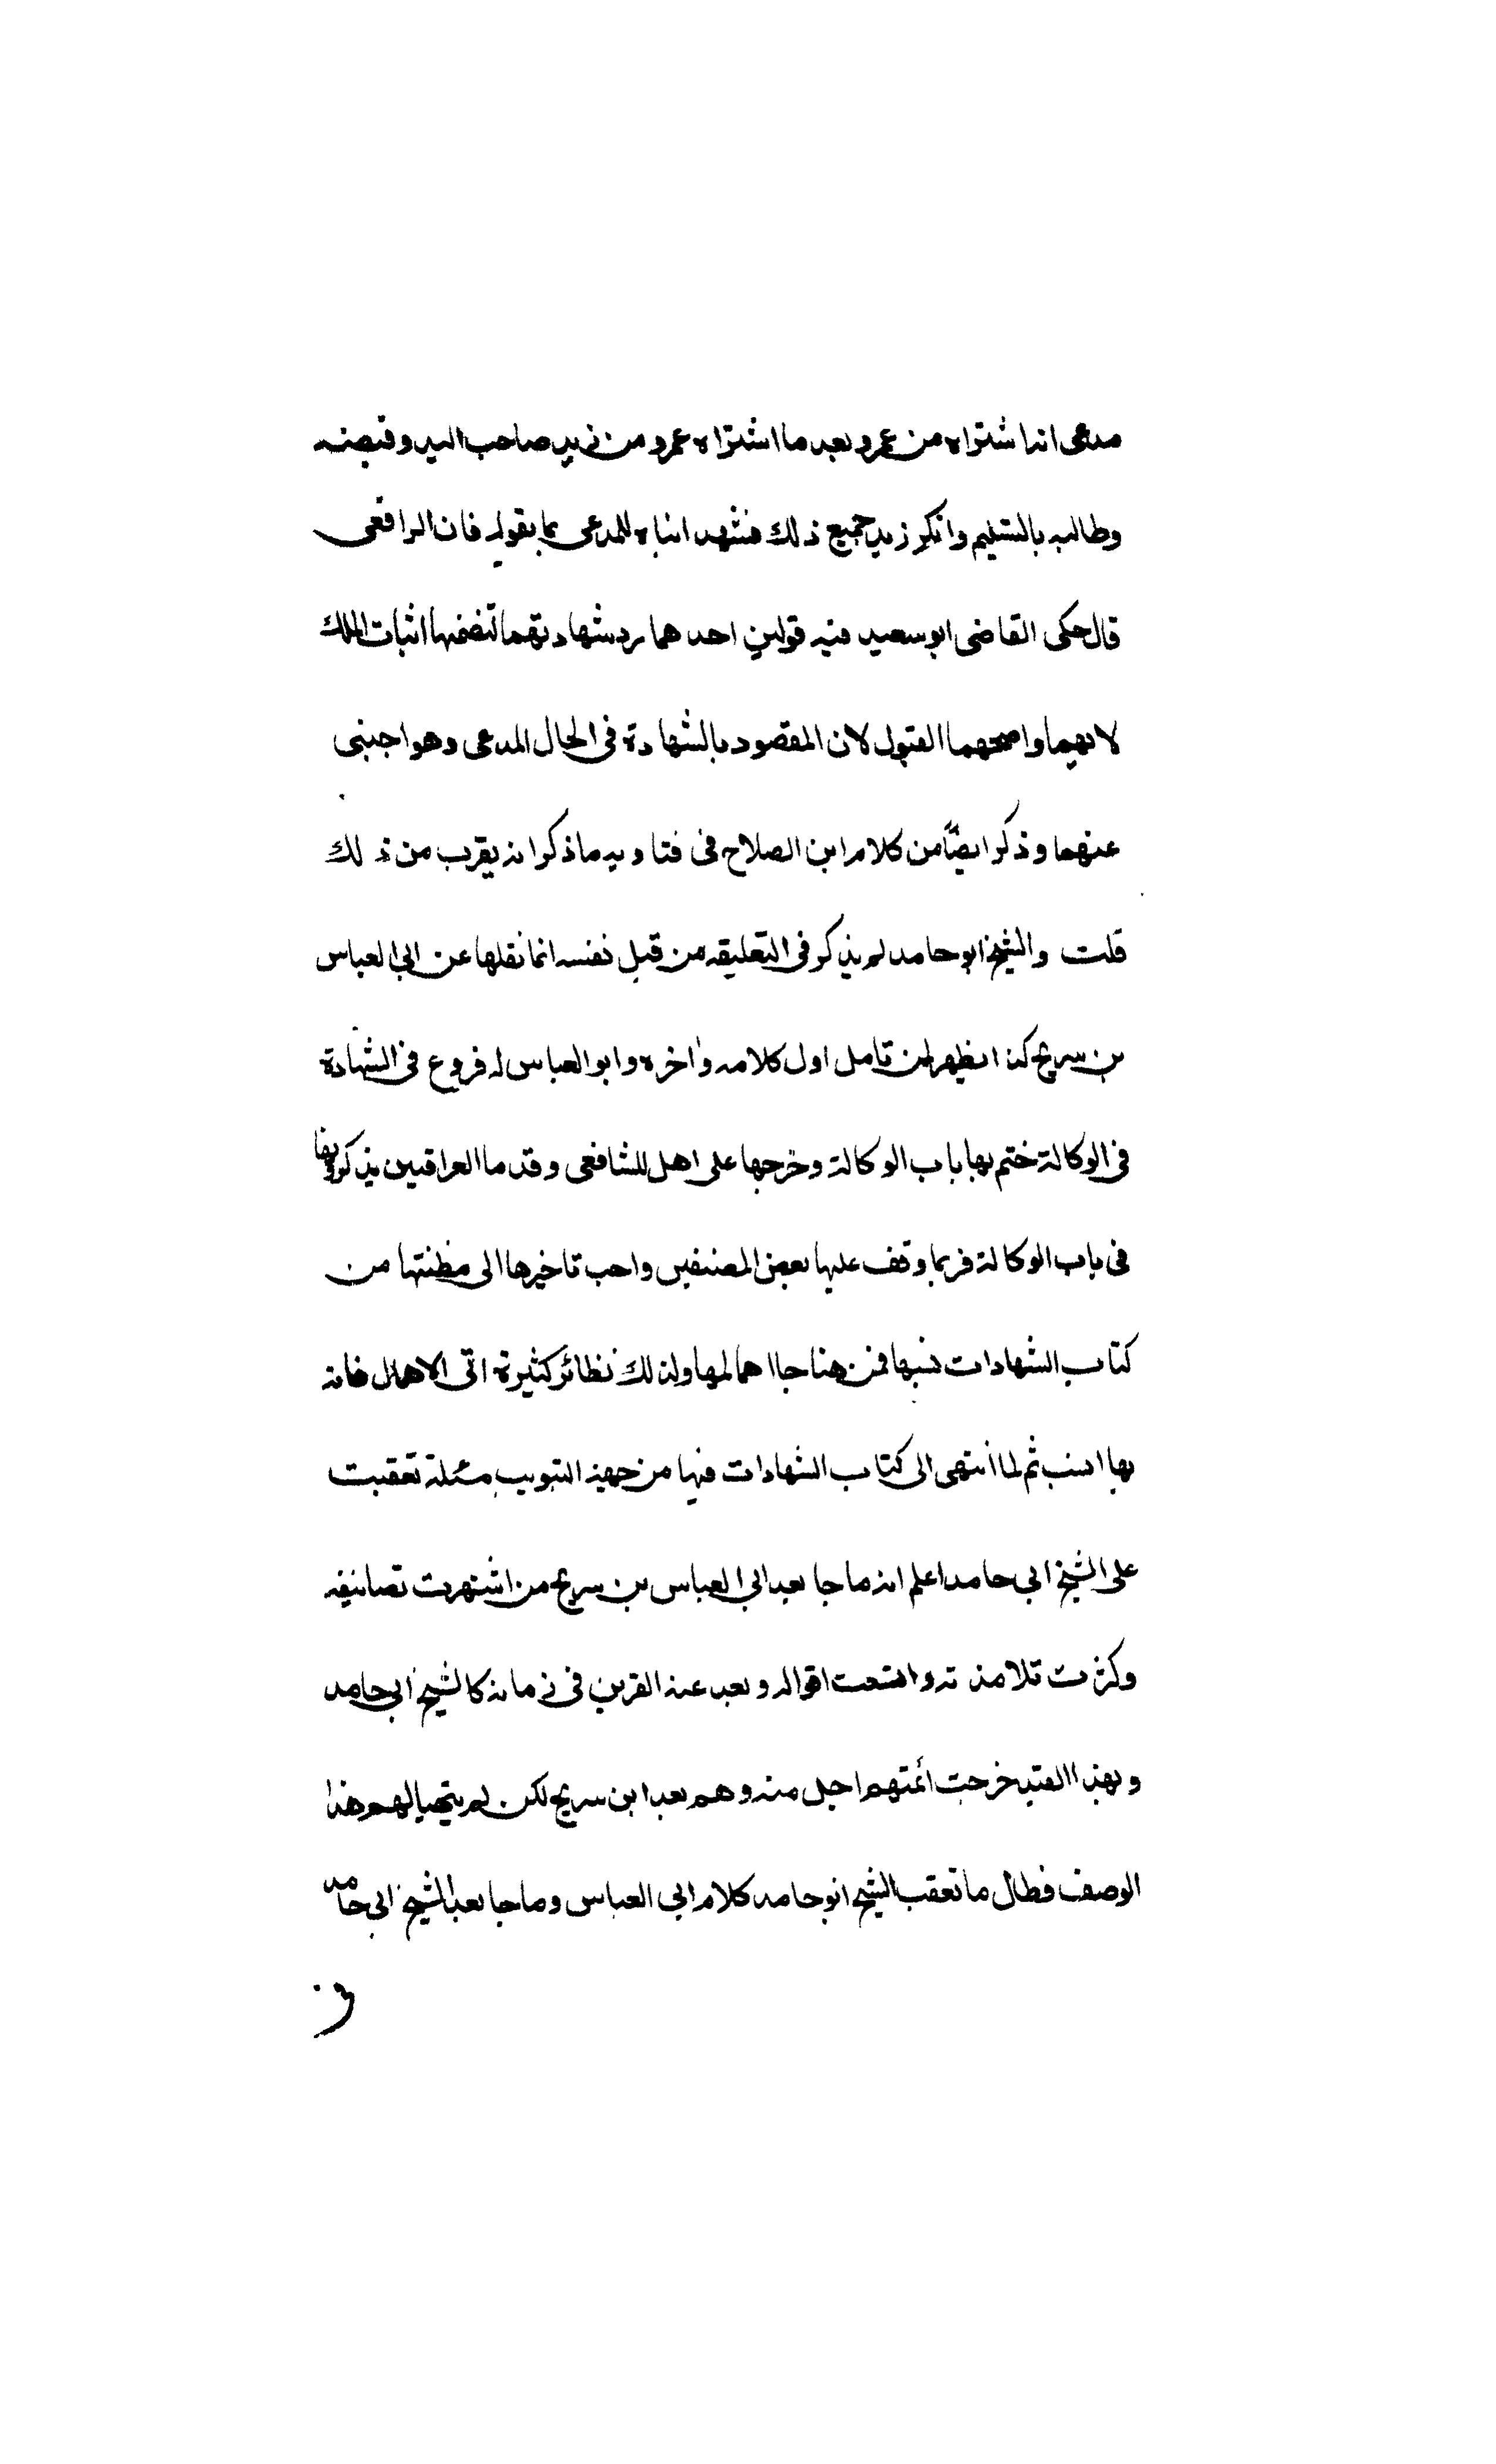 مدعى انه اشتراه من عمرو بعد ما اشتراه عمرو من زيد صاحب اليد وقبضه
وطالبه بالتسليم وانكر زيد جميع ذلك فشهد ابناه للمدعى بما يقوله فان الرافعى
قال حكى القاضى ابو سعيد فيه قولين احدهما رد شهادتهما لتضمنها اثبات الملك
لابيهما واصحهما القبول لان المقصود بالشهادة فى الحال المدعى وهو اجنبى
عنهما وذكر ايضًا من كلام ابن الصلاح فى فتاويه ما ذكر انه يقرب من ذلك
قلت والشيخ ابو حامد لم يذكر فى التعليقه من قبل نفسه انما نقلها عن ابى العباس
بن سريج كذا يظهر لمن تامل اول كلامه واخره وابو العباس له فروع فى الشهادة
فى الوكالة ختم بها باب الوكالة وخرجها على اهل للشافعى وقدما العراقيين يذكرونها
فى باب الوكالة فربما وقف عليها بعض المصنفين واحب تاخيرها الى مظنتها من
كتاب الشهادات نسبها فمن هنا جا اهمالها ولذلك نظائر كثيرة اتى الاهمال فانه
بها انسب ثم لما انتهى الى كتاب الشهادات فيها من جهة التبويب مسئلة تعقبت
على الشيخ ابى حامد اعلم انه ما جا بعد ابى العباس بن سريج من اشتهرت تصانيفه
وكثرت تلامذته واتسعت اقواله وبعد عنه القرين فى زمانه كالشيخ ابى حامد
وبهذا القيد خرجت ائمتهم اجل منه وهم بعد ابن سريج لكن لم يتهيا لهم هذا
الوصف فطال ما تعقب الشيخ ابو حامد كلام ابي العباس وما جا بعد الشيخ ابى حامد